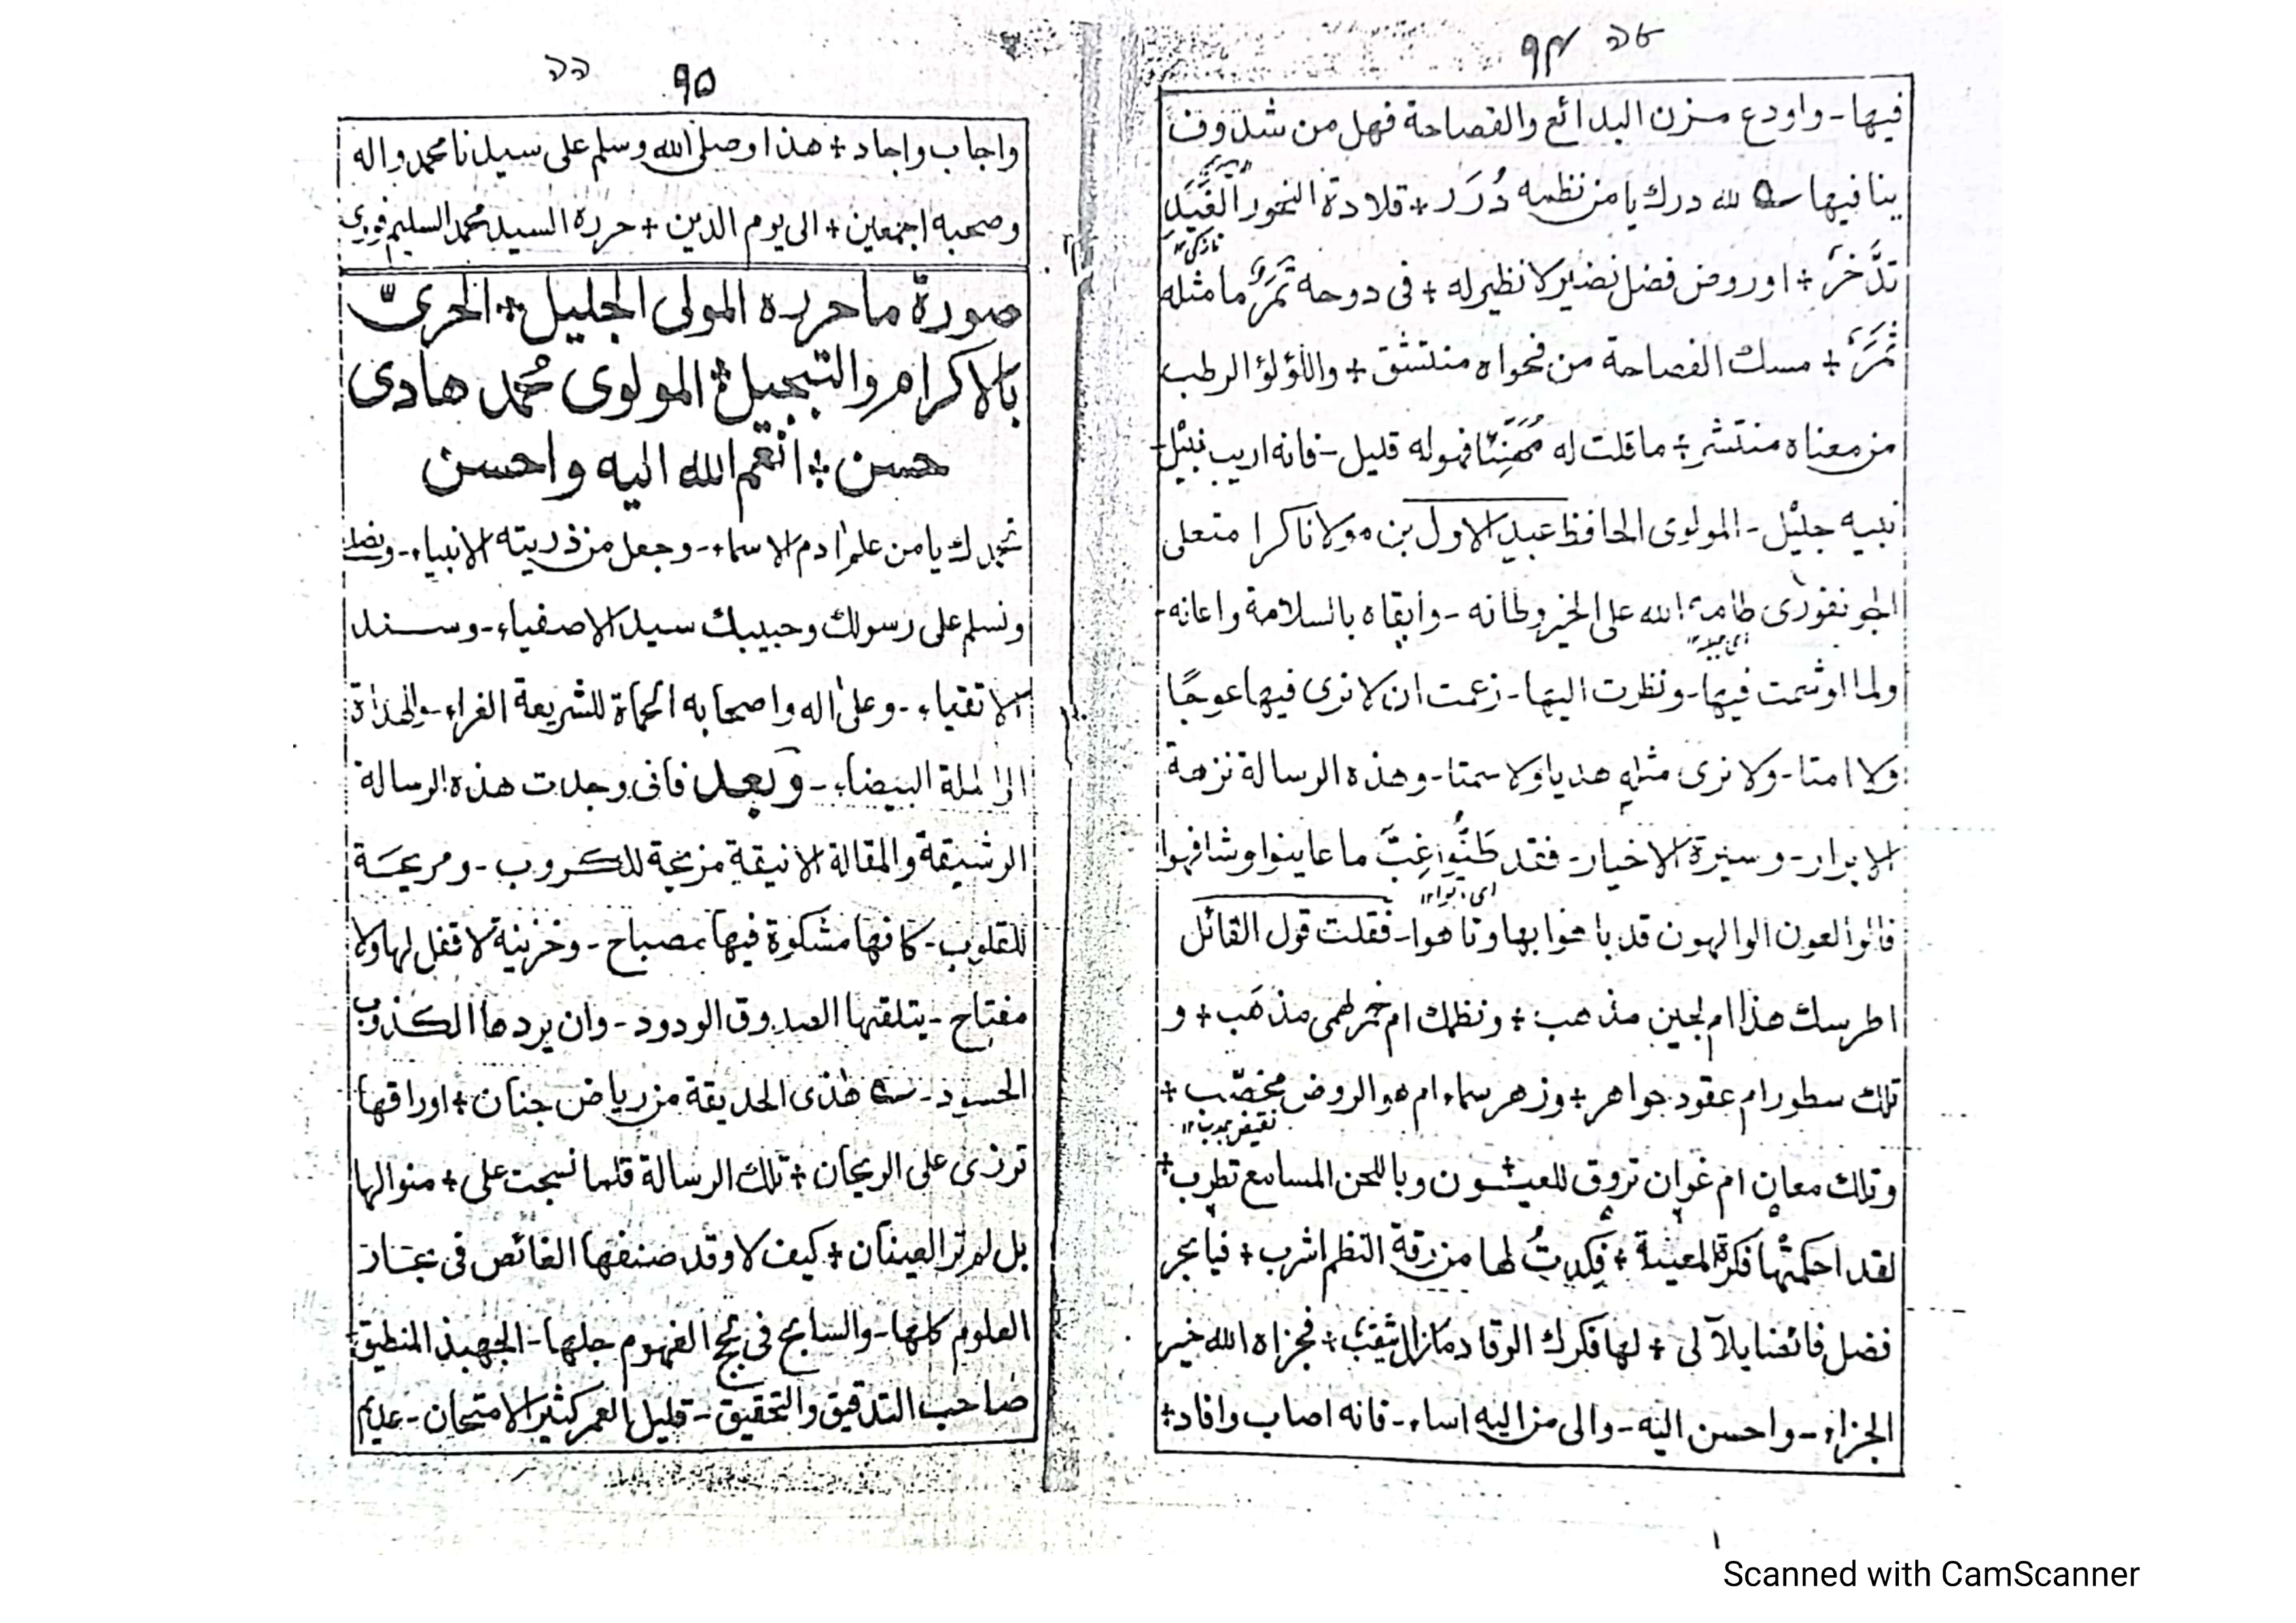 ٩٤ ٥٤
فيها - واودع من البدائع والفصاحة فهل من شذوف
ينافيها لله درك يا من نظمه دُرَر + قلادة النحور الغَيَدِ
تدَّخرُ + او روض فضل نضير لا نظير له + فى دوحة ثمَرٌ ما مثله
ثمَرٌ + مسك الفصاحة من فحواه منتشق + واللؤلؤ الرطب
من معناه منتشر + ما قلت له مُهَنِّئًا فهو له قليل - فانه اريب نبيل -
نبيه جليل - المولوى الحافظ عبد الاول بن مولانا كرامت على
الجونفورى ادامه الله على الخير وطانه - وابقاه بالسلامة واعانه -
ولما اوشمت فيها - ونظرت اليها - زعمت ان لا نرى فيها عوجًا
ولا امتا - ولا نرى مثله هديا ولا سمتا - وهذه الرسالة نزهة
الابرار - وسيرة الاخيار - فقد ظنُّوا غِبَّ ما عاينوا وشافهوا
قالوا لعون الوالهون قد باخوا بها وتاهوا - فقلت قول القائل
اطرسك هذا ام لجين مذهب + ونظمك ام خمر لهمى مذهَب + و
تلك سطور ام عقود جواهر + وزهر سماء ام هو الروض مخصّب +
نقيض مجدب ١٢
وتلك معانٍ ام غوانٍ تروق للعيــون وباللحن المسامع تطرب +
لقد احكمتْها فكرة المعية + فكِدتُ لها من رقة النظم اشرب + فيا بحر
فضل فائضا بلآلى + لها فكرك الوقاد ما زال يثقب + فجزاه الله خير
الجزاء - واحسن اليه - والى من اليه اساء - فانه اصاب وافاد +
٩٥ ٥٥
واجاب واجاد + هذا وصلى الله وسلم على سيدنا محمد واله
وصحبه اجمعين + الى يوم الدين + حرره السيد محمد السليم فورى
صورة ما حرره المولى الجليل + الحرىّ
بالاكرام والتبجيل + المولوى محمد هادى
حسن + انعم الله اليه واحسن
نحمدك يا من علم ادم الاسماء - وجعل من ذريته الانبياء - ونصلى
ونسلم على رسولك وحبيبك سيد الاصفياء - وســـند
الاتقياء - وعلى اله واصحابه الحماة للشريعة الغراء - والهداة
الى الملة البيضاء - وبعد فانى وجدت هذه الرسالة
الرشيقة والمقالة الانيقة مزيحة للكروب - ومريحــة
للقلوب - كانها مشكوة فيها مصباح - وخزينة لا قفل لها ولا
مفتاح - يتلقها الصدوق الودود - وان يردها الكذوب
الحسود - هذى الحديقة من رياض جنان + اوراقها
تزرى على الريحان + تلك الرسالة قلما نسجت على + منوالها
بل لم تر العينان + كيف لا وقد صنفها الغائص فى بحــار
العلوم كلها - والسابح فى لجج الفهوم جلها - الجهبذ المنطيق
صاحب التدقيق والتحقيق - قليل العمر كثير الامتحان - عديم
Scanned with CamScanner